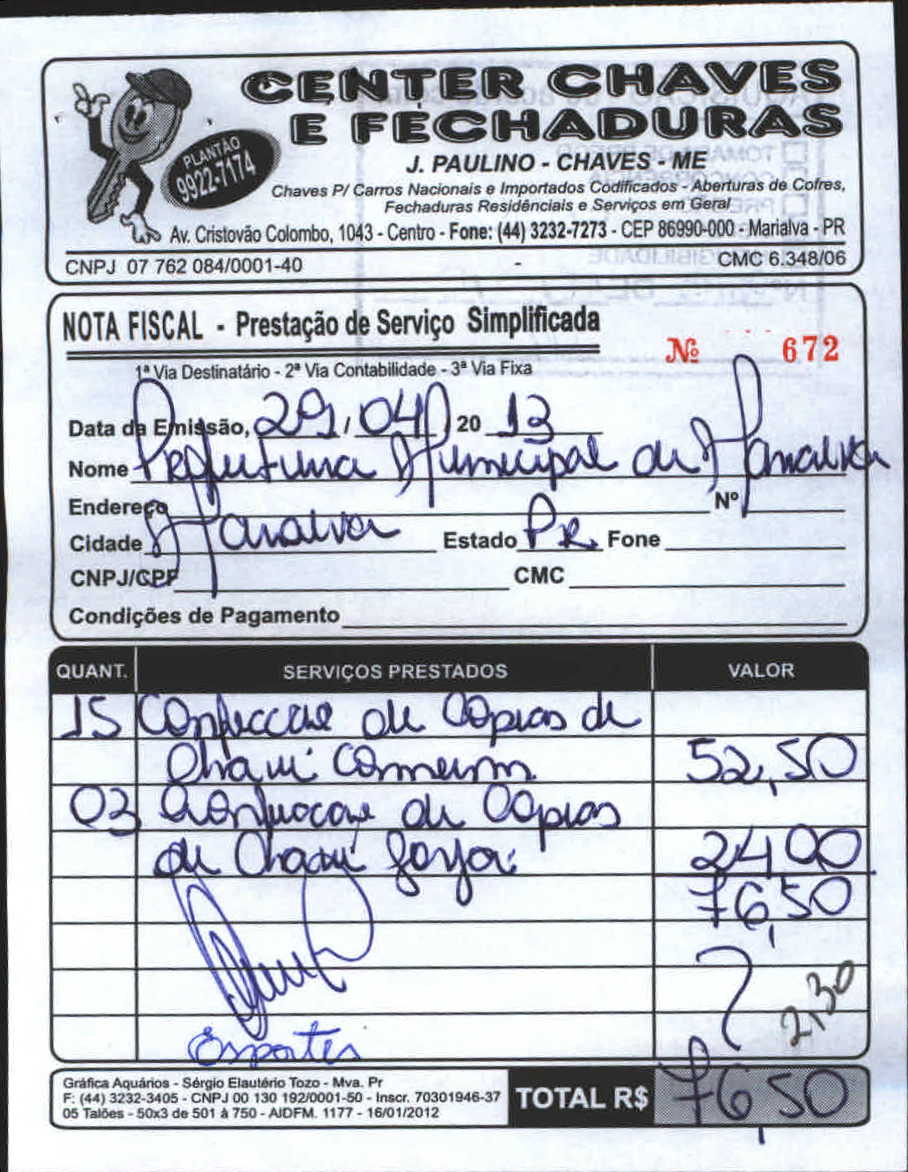 CENTER CHAVES
E FECHADURAS
PLANTÃO
9922-7174
J. PAULINO - CHAVES - ME
Chaves P/ Carros Nacionais e Importados Codificados - Aberturas de Cofres,
Fechaduras Residênciais e Serviços em Geral
Av. Cristovão Colombo, 1043 - Centro - Fone: (44) 3232-7273 - CEP 86990-000 - Marialva - PR
CNPJ 07 762 084/0001-40 - CMC 6.348/06
NOTA FISCAL - Prestação de Serviço Simplificada
Nº 672
1ª Via Destinatário - 2ª Via Contabilidade - 3ª Via Fixa
Data da Emissão, 29/04/20 13
Nome Prefeitura Municipal de Marialva
Endereço Nº
Cidade Marialva Estado PR. Fone
CNPJ/CPF CMC
Condições de Pagamento
QUANT. SERVIÇOS PRESTADOS VALOR
15 Confeccae de Copias de
Chave Comum 52,50
03 Confeccae de Copias
de Chave forja. 24,00
76,50
2,30
Esportes
Gráfica Aquários - Sérgio Elautério Tozo - Mva. Pr
F: (44) 3232-3405 - CNPJ 00 130 192/0001-50 - Inscr. 70301946-37
05 Talões - 50x3 de 501 à 750 - AIDFM. 1177 - 16/01/2012
TOTAL R$ 76,50